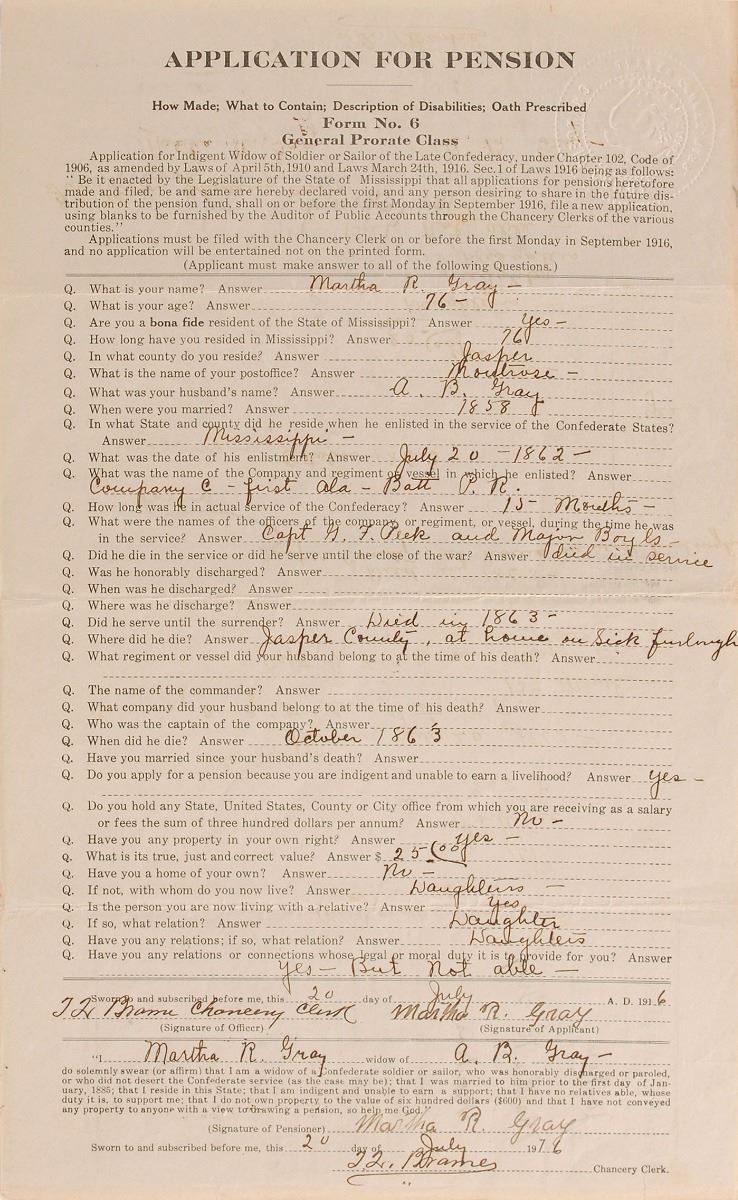 APPLICATION FOR PENSION
How Made; What to Contain; Description of Disabilities; Oath Prescribed
Form No. 6
General Prorate Class
Application for Indigent Widow of Soldier or Sailor of the Late Confederacy, under Chapter 102, Code of
1906, as amended by Laws of April 5th, 1910 and Laws March 24th, 1916. Sec. 1 of Laws 1916 being as follows:
" Be it enacted by the Legislature of the State of Mississippi that all applications for pensions heretofore
made and filed, be and same are hereby declared void, and any person desiring to share in the future dis-
tribution of the pension fund, shall on or before the first Monday in September 1916, file a new application,
using blanks to be furnished by the Auditor of Public Accounts through the Chancery Clerks of the various
counties."
Applications must be filed with the Chancery Clerk on or before the first Monday in September 1916,
and no application will be entertained not on the printed form.
(Applicant must make answer to all of the following Questions.)
Q. What is your name? Answer Martha R. Gray —
Q. What is your age? Answer 76 —
Q. Are you a bona fide resident of the State of Mississippi? Answer Yes —
Q. How long have you resided in Mississippi? Answer 76
Q. In what county do you reside? Answer Jasper
Q. What is the name of your postoffice? Answer Montrose —
Q. What was your husband's name? Answer A. B. Gray
Q. When were you married? Answer 1858
Q. In what State and county did he reside when he enlisted in the service of the Confederate States?
Answer Mississippi —
Q. What was the date of his enlistment? Answer July 20 — 1862 —
Q. What was the name of the Company and regiment or vessel in which he enlisted? Answer
Company C — first Ala — Batt P. R.
Q. How long was he in actual service of the Confederacy? Answer 15 Months —
Q. What were the names of the officers of the company or regiment, or vessel, during the time he was
in the service? Answer Capt G. F. Peek and Major Boyls —
Q. Did he die in the service or did he serve until the close of the war? Answer died in service
Q. Was he honorably discharged? Answer
Q. When was he discharged? Answer
Q. Where was he discharge? Answer
Q. Did he serve until the surrender? Answer Died in 1863 —
Q. Where did he die? Answer Jasper County, at home on Sick furlough
Q. What regiment or vessel did your husband belong to at the time of his death? Answer
Q. The name of the commander? Answer
Q. What company did your husband belong to at the time of his death? Answer
Q. Who was the captain of the company? Answer
Q. When did he die? Answer October 1863
Q. Have you married since your husband's death? Answer
Q. Do you apply for a pension because you are indigent and unable to earn a livelihood? Answer yes —
Q. Do you hold any State, United States, County or City office from which you are receiving as a salary
or fees the sum of three hundred dollars per annum? Answer No —
Q. Have you any property in your own right? Answer yes —
Q. What is its true, just and correct value? Answer $ 25 00
Q. Have you a home of your own? Answer No —
Q. If not, with whom do you now live? Answer Daughters —
Q. Is the person you are now living with a relative? Answer Yes
Q. If so, what relation? Answer Daughter
Q. Have you any relations; if so, what relation? Answer Daughters
Q. Have you any relations or connections whose legal or moral duty it is to provide for you? Answer
Yes — But Not able —
Sworn to and subscribed before me, this 20 day of July A. D. 1916
T Q Brame Chancery Clerk Martha R. Gray
(Signature of Officer) (Signature of Applicant)
"I Martha R. Gray widow of A. B. Gray —
do solemnly swear (or affirm) that I am a widow of a Confederate soldier or sailor, who was honorably discharged or paroled,
or who did not desert the Confederate service (as the case may be); that I was married to him prior to the first day of Jan-
uary, 1885; that I reside in this State; that I am indigent and unable to earn a support; that I have no relatives able, whose
duty it is, to support me; that I do not own property to the value of six hundred dollars ($600) and that I have not conveyed
any property to anyone with a view to drawing a pension, so help me God."
(Signature of Pensioner) Martha R. Gray
Sworn to and subscribed before me, this 20 day of July 1916
T. Q. Brame Chancery Clerk.